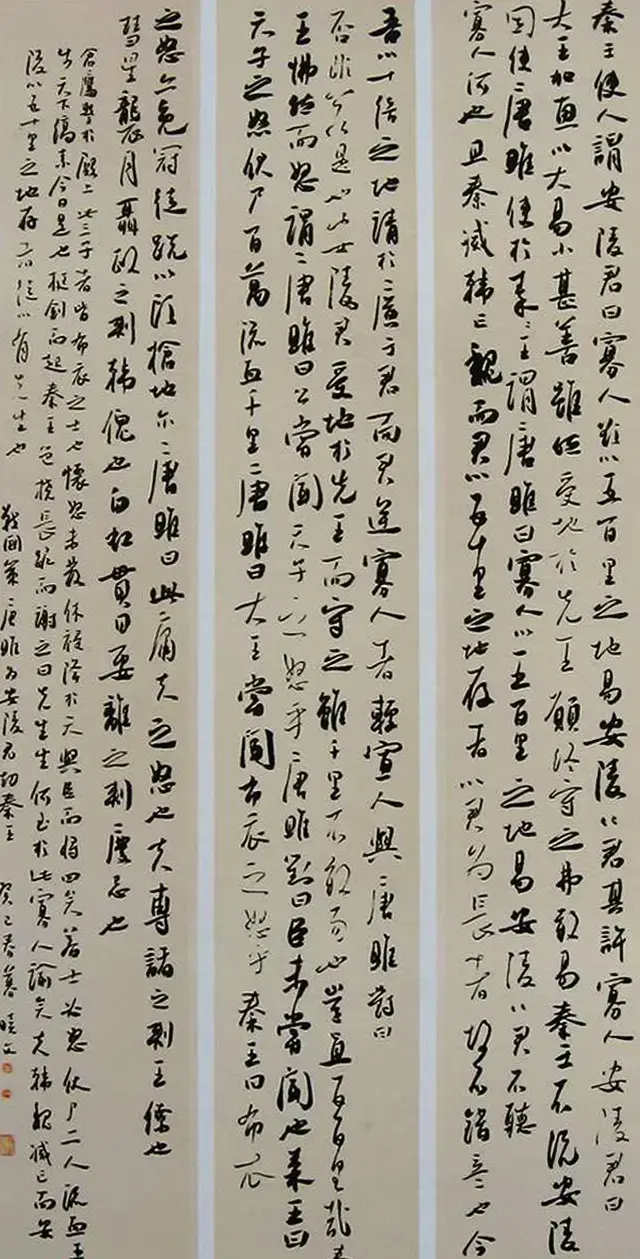 秦王使人謂安陵君曰寡人欲以五百里之地易安陵安陵君其許寡人安陵君曰
大王加惠以大易小甚善雖然受地於先王願終守之弗敢易秦王不悅安陵
君因使唐雎使於秦秦王謂唐雎曰寡人以五百里之地易安陵安陵君不聽
寡人何也且秦滅韓亡魏而君以五十里之地存者以君為長者故不錯意也今
吾以十倍之地請於廣於君而君逆寡人者輕寡人與唐雎對曰
否非若是也安陵君受地於先王而守之雖千里不敢易也豈直五百里哉秦
王怫然而怒謂唐雎曰公嘗聞天子之怒乎唐雎對曰臣未嘗聞也秦王曰
天子之怒伏尸百萬流血千里唐雎曰大王嘗聞布衣之怒乎秦王曰布衣
之怒亦免冠徒跣以頭搶地爾唐雎曰此庸夫之怒也夫專諸之刺王僚也
彗星襲月聶政之刺韓傀也白虹貫日要離之刺慶忌也
倉鷹擊於殿上此三子者皆布衣之士也懷怒未發休祲降於天與臣而將四矣若士必怒伏尸二人流血五
步天下縞素今日是也挺劍而起秦王色撓長跪而謝之曰先生坐何至於此寡人諭矣夫韓魏滅亡而安
陵以五十里之地存者徒以有先生也
戰國策唐雎為安陵君劫秦王 癸巳春暮曉文